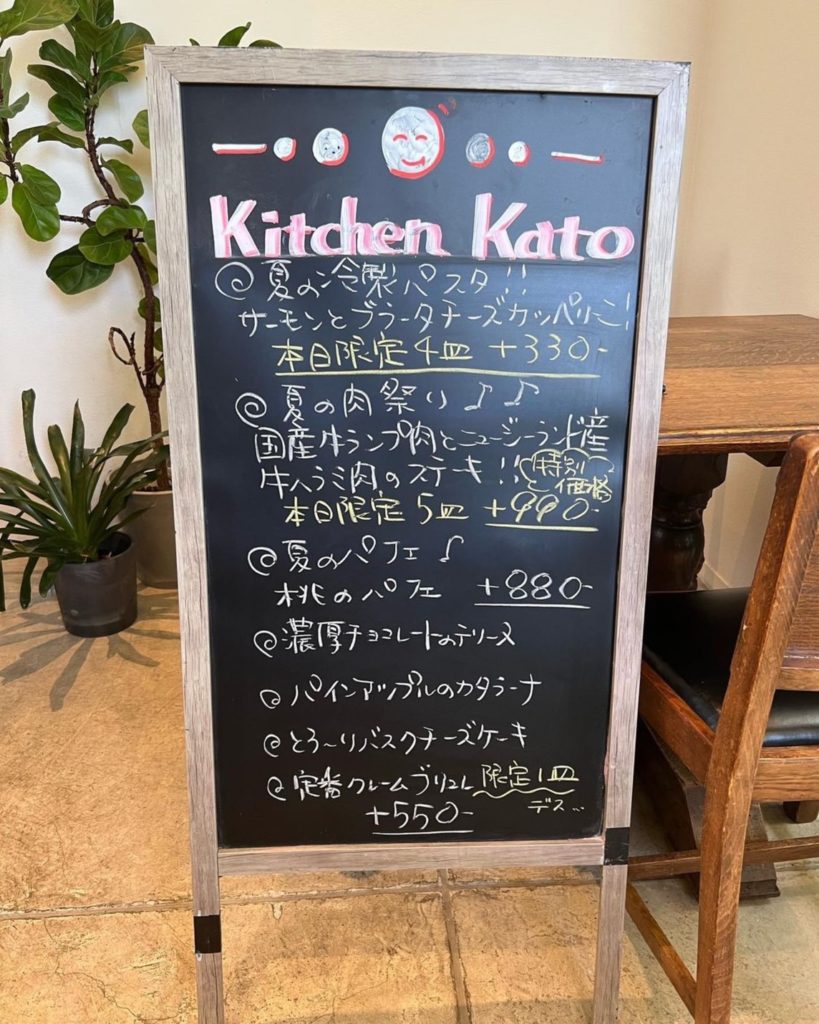 Kitchen Kato
夏の冷製パスタ!!
サーモンとブラータチーズカッペリーニ!
本日限定4皿 +330-
夏の肉祭り♪♪
国産牛ランプ肉とニュージーランド産
牛ハラミ肉のステーキ!! 特別価格
本日限定5皿 +990-
夏のパフェ♪
桃のパフェ +880-
濃厚チョコレートのテリーヌ
パインアップルのカタラーナ
とろ〜りバスクチーズケーキ
定番クレームブリュレ 限定1皿
デス...
+550-